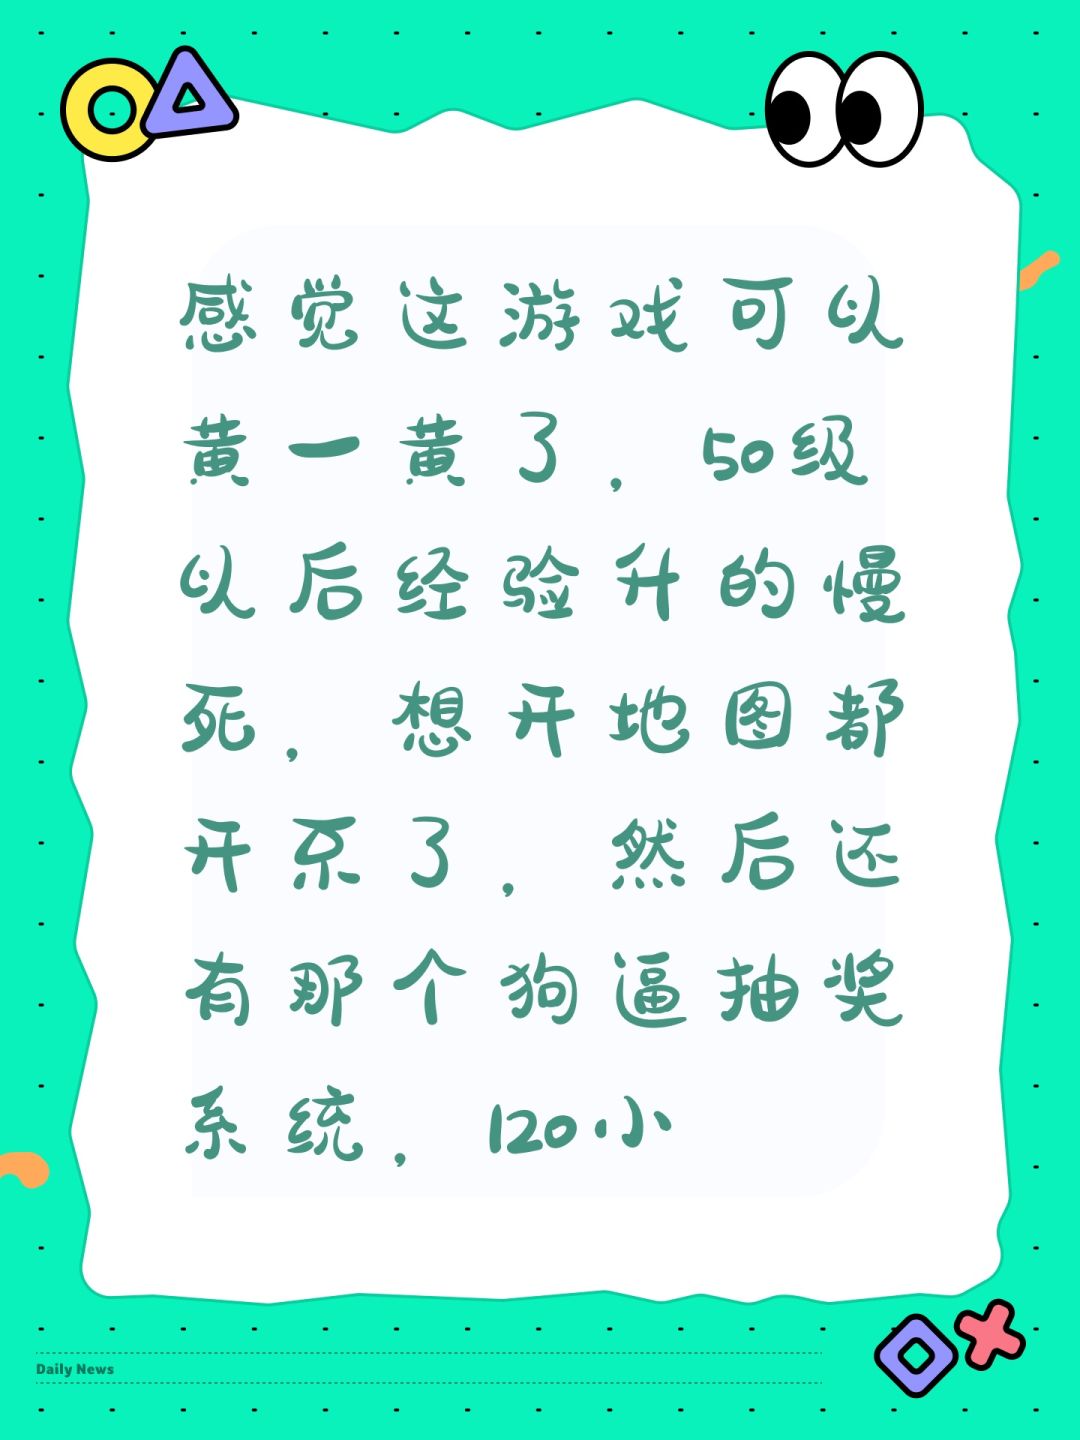 感觉这游戏可以
黄一黄了，50级
以后经验升的慢
死，想开地图都
开不了，然后还
有那个狗逼抽奖
系统，120小
Daily News